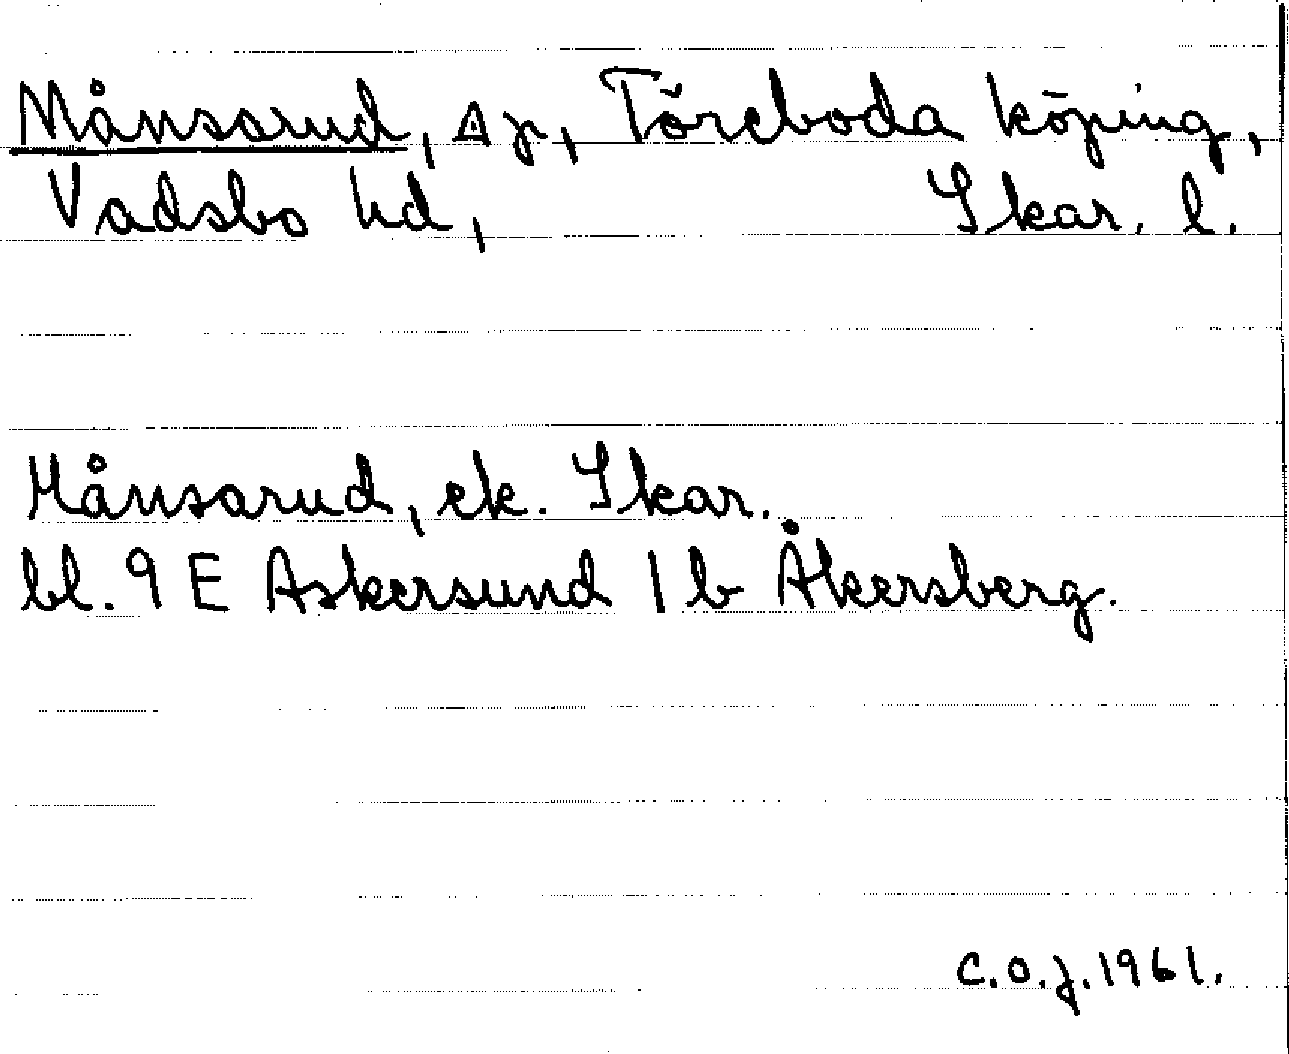 Månsarud, sp, Töreboda köping,
Vadsbo hd, Skar. l.
Månsarud, ek. Skar.
bl. 9 E Askersund 1 b Åkersberg.
C.O.J. 1961.